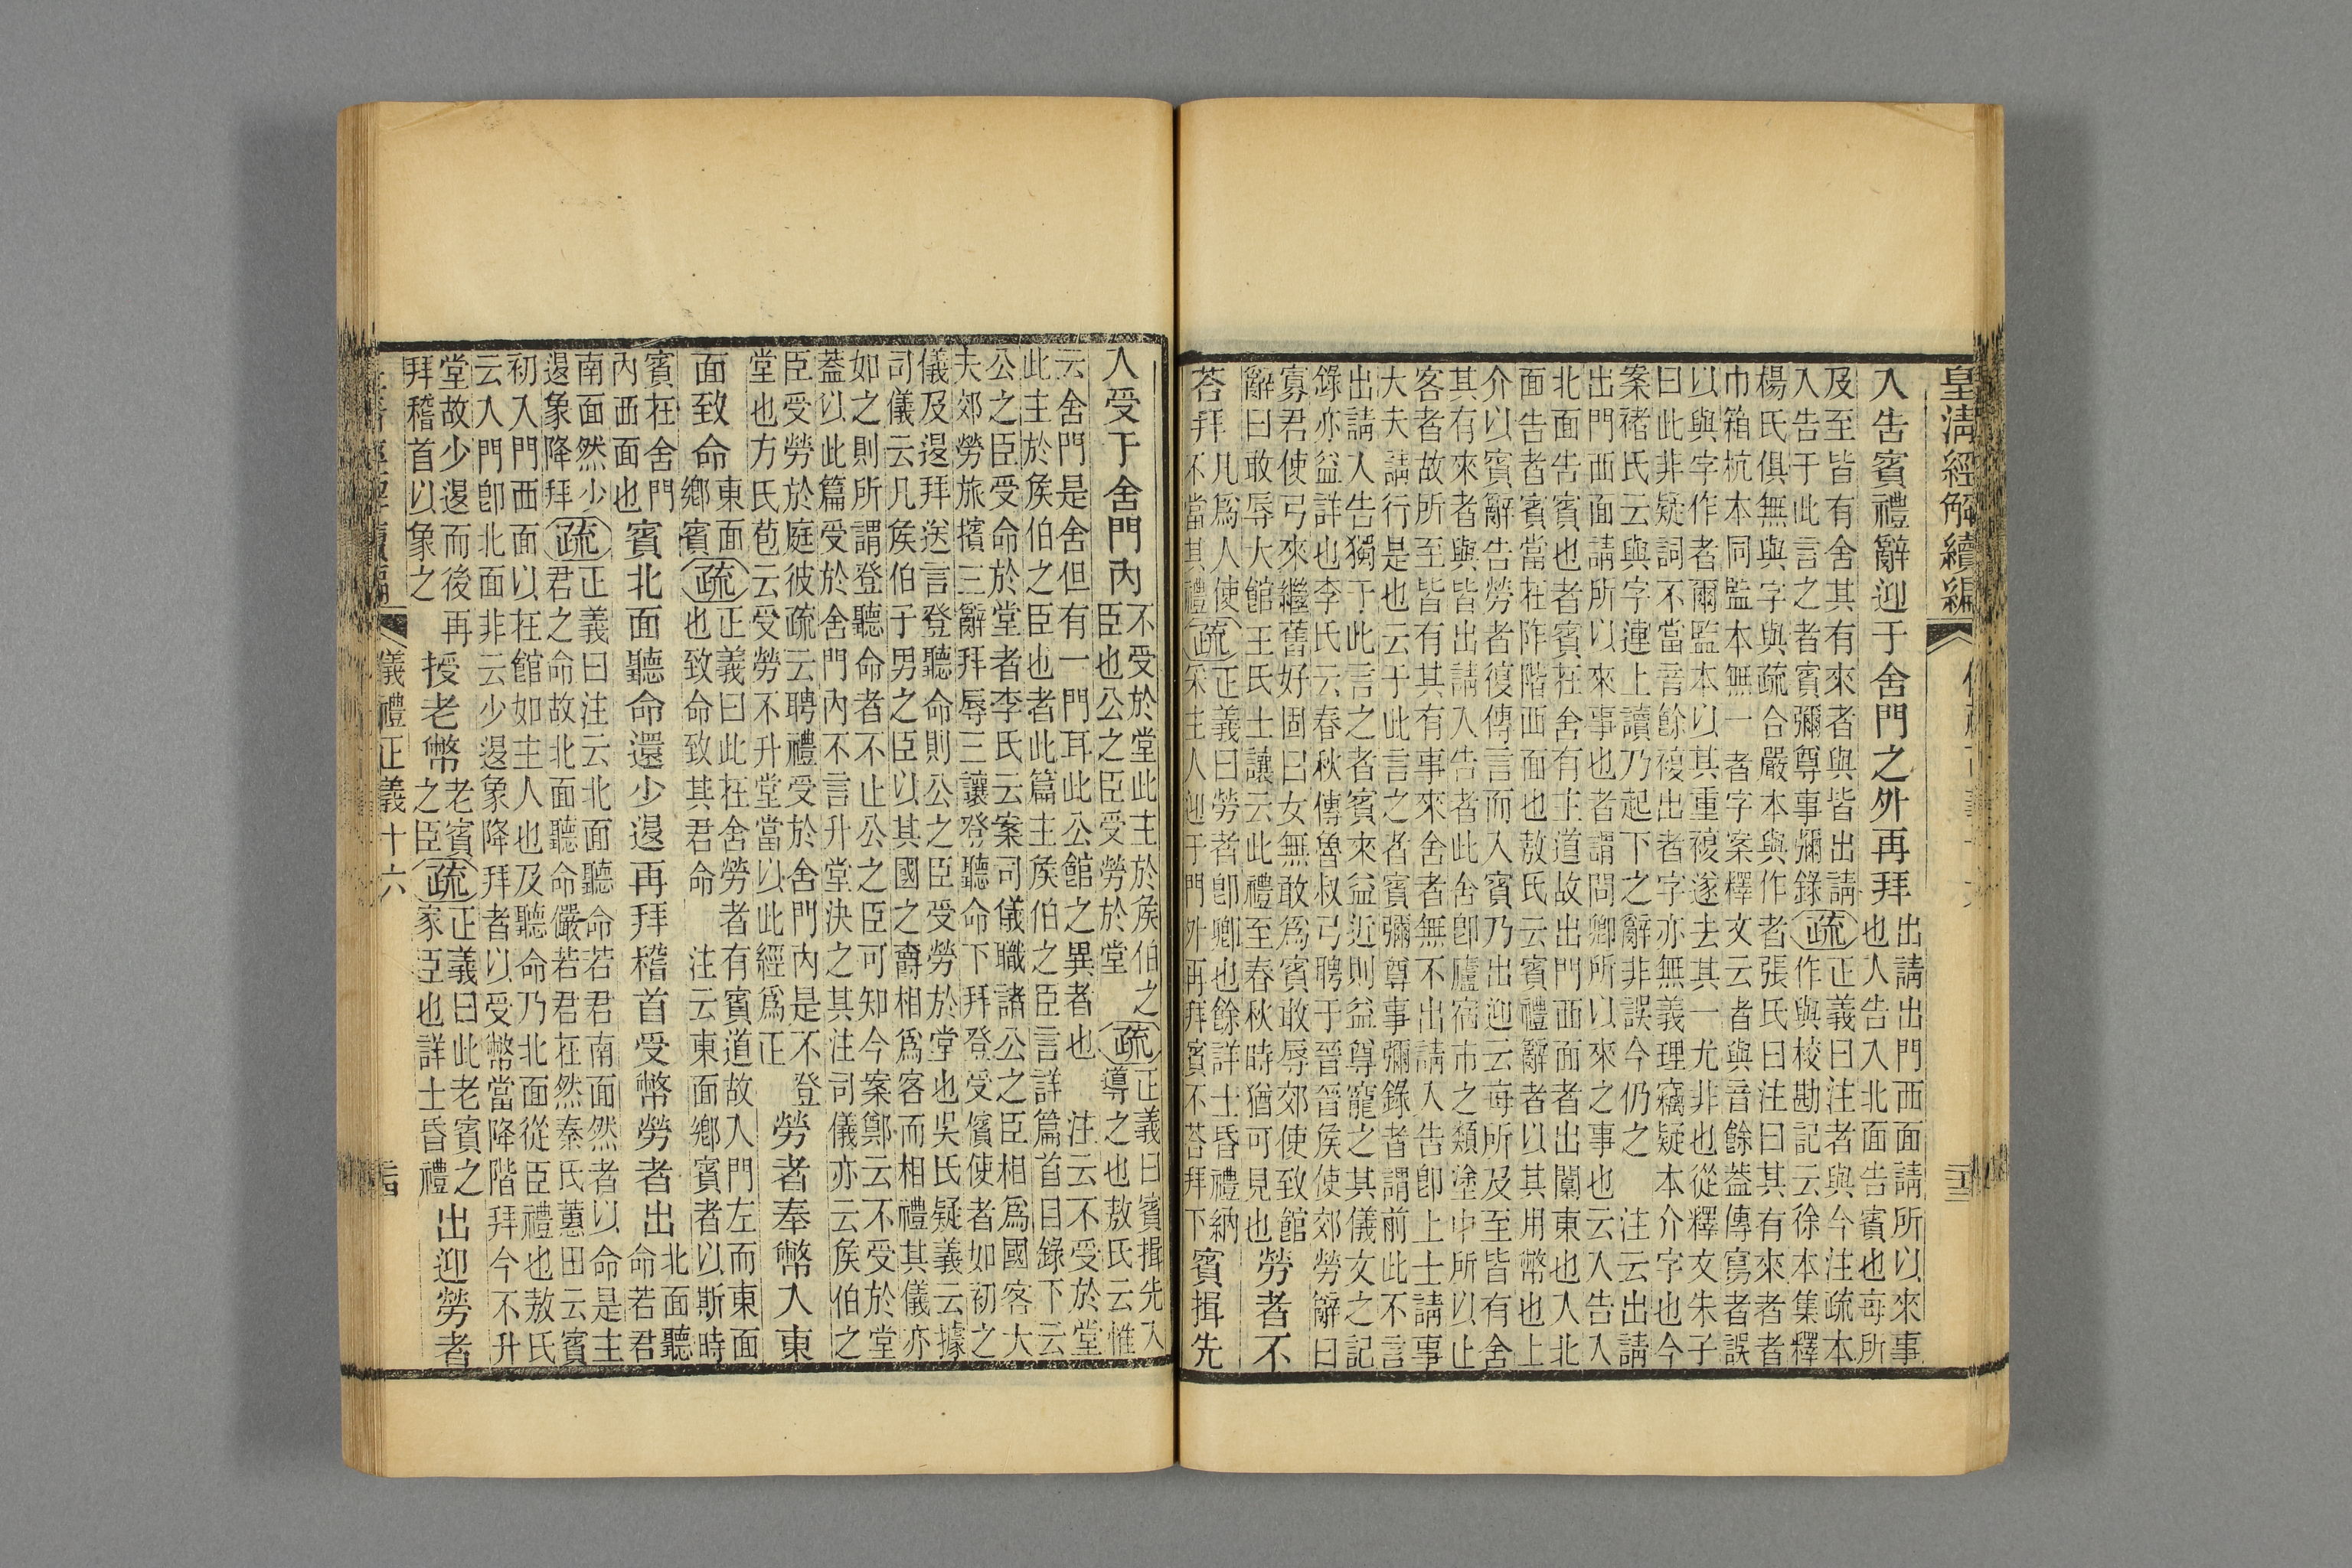 皇清經解續編
入告賓禮辭迎于舍門之外再拜
出請出門西面請所以來事
也入告入北面告賓也每所
及至皆有舍其有來者與皆出請
入告于此言之者賓彌尊事彌錄
疏
正義曰注者與今注疏本
作與校勘記云徐本集釋
楊氏俱無與字與疏合嚴本與作者張氏曰注曰其有來者者
巾箱杭本同監本無一者字案釋文云者與音餘蓋傳寫者誤
以與字作者爾監本以其重複遂去其一尤非也從釋文朱子
曰此非疑詞不當音餘複出者字亦無義理竊疑本介字也今
案褚氏云與字連上讀乃起下之辭非誤今仍之 注云出請
出門西面請所以來事也者謂問卿所以來之事也云入告入
北面告賓也者賓在舍有主道故出門西面者出闑東也入北
面告者賓當在阼階西面也敖氏云賓禮辭者以其用幣也上
介以賓辭告勞者復傳言而入賓乃出迎云每所及至皆有舍
其有來者與皆出請入告者此舍卽廬宿市之類塗中所以止
客者故所至皆有其有事來舍者無不出請入告卽上士請事
大夫請行是也云于此言之者賓彌尊事彌錄者謂前此不言
出請入告獨于此言之者賓來益近則益尊寵之其儀文之記
錄亦益詳也李氏云春秋傳魯叔弓聘于晉晉侯使郊勞辭曰
寡君使弓來繼舊好固曰女無敢爲賓敢辱郊使致館
辭曰敢辱大館王氏士讓云此禮至春秋時猶可見也
勞者不
荅拜
凡爲人使
不當其禮
疏
正義曰勞者卽卿也餘詳士昏禮納
采主人迎于門外再拜賓不荅拜下
賓揖先
入受于舍門內
不受於堂此主於侯伯之
臣也公之臣受勞於堂
疏
正義曰賓揖先入
導之也敖氏云惟
云舍門是舍但有一門耳此公館之異者也 注云不受於堂
此主於侯伯之臣也者此篇主侯伯之臣言詳篇首目錄下云
公之臣受命於堂者李氏云案司儀職諸公之臣相爲國客大
夫郊勞旅擯三辭拜辱三讓登聽命下拜登受儐使者如初之
儀及退拜送言登聽命則公之臣受勞於堂也吳氏疑義云據
司儀云凡侯伯子男之臣以其國之爵相爲客而相禮其儀亦
如之則所謂登聽命者不止公之臣可知今案鄭云不受於堂
蓋以此篇受於舍門內不言升堂決之其注司儀亦云侯伯之
臣受勞於庭彼疏云聘禮受於舍門內是不登
堂也方氏苞云受勞不升堂當以此經爲正
勞者奉幣入東
面致命
東面
鄉賓
疏
正義曰此在舍勞者有賓道故入門左而東面
也致命致其君命 注云東面鄉賓者以斯時
賓在舍門
內西面也
賓北面聽命還少退再拜稽首受幣勞者出
北面聽
命若君
南面然少
退象降拜
疏
正義曰注云北面聽命若君南面然者以命是主
君之命故北面聽命儼若君在然秦氏蕙田云賓
初入門西面以在館如主人也及聽命乃北面從臣禮也敖氏
云入門卽北面非云少退象降拜者以受幣當降階拜今不升
堂故少退而後再
拜稽首以象之
授老幣
老賓
之臣
疏
正義曰此老賓之
家臣也詳士昏禮
出迎勞者
儀禮正義十六